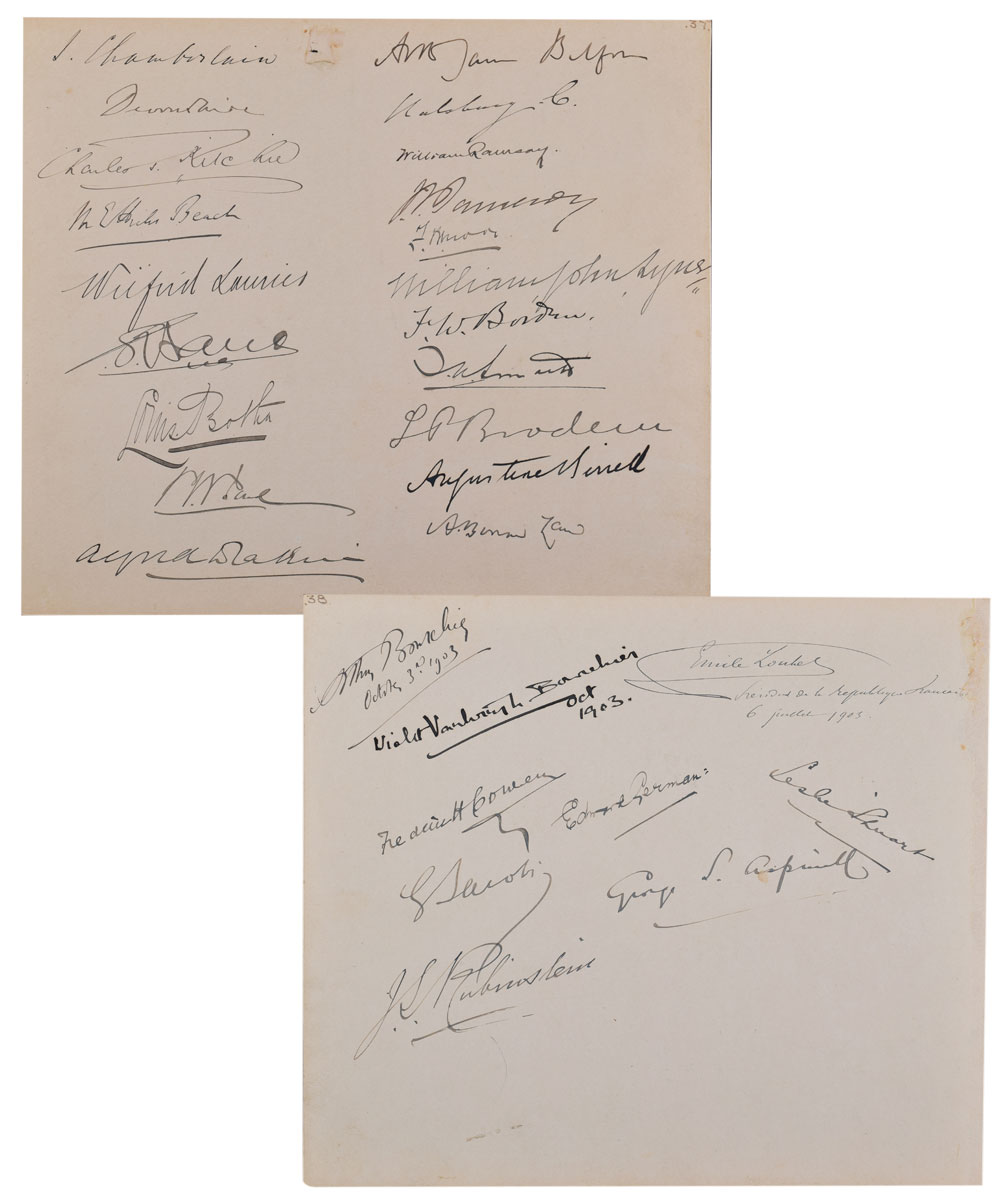 37.
J. Chamberlain
Devonshire
Charles T. Ritchie
M E Hicks Beach
Wilfrid Laurier
Louis Botha
Alfred Deakin
Arthur James Balfour
Halsbury. C.
William Ramsay.
William John Lyne
F. W. Borden.
L P Brodeur
Augustine Birrell
A. Bonar Law
38.
Arthur Bourchier
October 3rd 1903
Violet Vanbrugh-Bourchier
Oct
1903.
Emile Loubet
Président de la République Française
6 juillet 1903.
Frederic H Cowen
Edward German
Leslie Stuart
G Jacobi
George S. Aspinall
J. S. Rubinstein